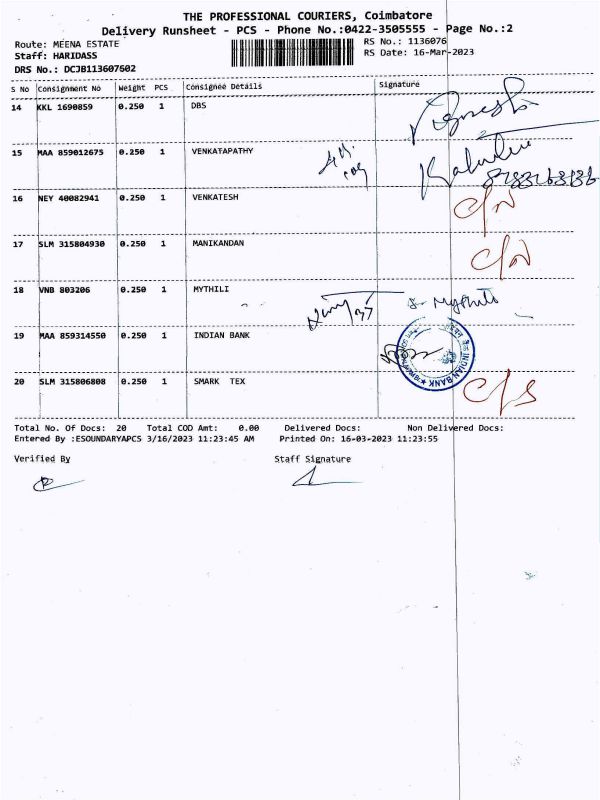 THE PROFESSIONAL COURIERS, Coimbatore
Delivery Runsheet - PCS - Phone No.:0422-3505555 - Page No.:2
Route: MEENA ESTATE
RS No.: 1136076
Staff: HARIDASS
RS Date: 16-Mar-2023
DRS No.: DCJB113607602
S No Consignment No Weight PCS Consignee Details Signature
14 KKL 1690859 0.250 1 DBS
15 MAA 859012675 0.250 1 VENKATAPATHY
16 NEY 40082941 0.250 1 VENKATESH
17 SLM 315804930 0.250 1 MANIKANDAN
18 VNB 803206 0.250 1 MYTHILI
S. Mythili
19 MAA 859314550 0.250 1 INDIAN BANK
INDIAN BANK
20 SLM 315806808 0.250 1 SMARK TEX
C/S
Total No. Of Docs: 20 Total COD Amt: 0.00 Delivered Docs: Non Delivered Docs:
Entered By :ESOUNDARYAPCS 3/16/2023 11:23:45 AM Printed On: 16-03-2023 11:23:55
Verified By Staff Signature